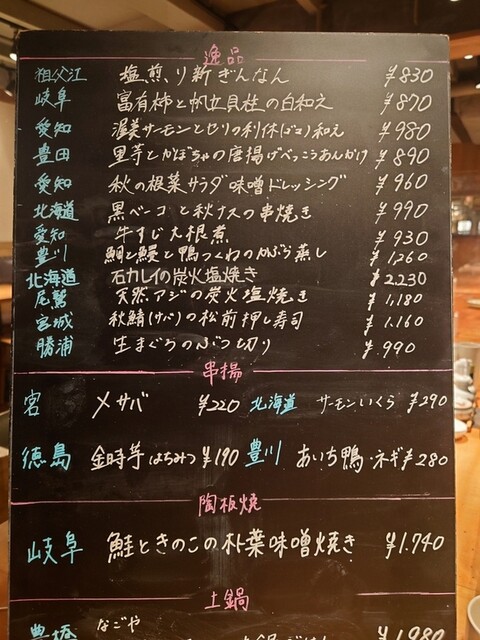 逸品
祖父江 塩煎り新ぎんなん ¥830
岐阜 富有柿と帆立貝柱の白和え ¥870
愛知 渥美サーモンとセリの利休(ゴマ)和え ¥980
豊田 里芋とかぼちゃの唐揚げべっこうあんかけ ¥890
愛知 秋の根菜サラダ味噌ドレッシング ¥960
北海道 黒ベーコンと秋ナスの串焼き ¥990
愛知 牛すじ大根煮 ¥930
豊川 鯛と鰻と鴨つくねのかぶら蒸し ¥1,260
北海道 石カレイの炭火塩焼き ¥2,230
尾鷲 天然アジの炭火塩焼き ¥1,180
宮城 秋鯖(サバ)の松前押し寿司 ¥1,160
勝浦 生まぐろのぶつ切り ¥990
串揚
宮 〆サバ ¥220 北海道 サーモンいくら ¥290
徳島 金時芋(はちみつ) ¥190 豊川 あいち鴨・ネギ ¥280
陶板焼
岐阜 鮭ときのこの朴葉味噌焼き ¥1,740
土鍋
豊橋 なごや ¥1,980